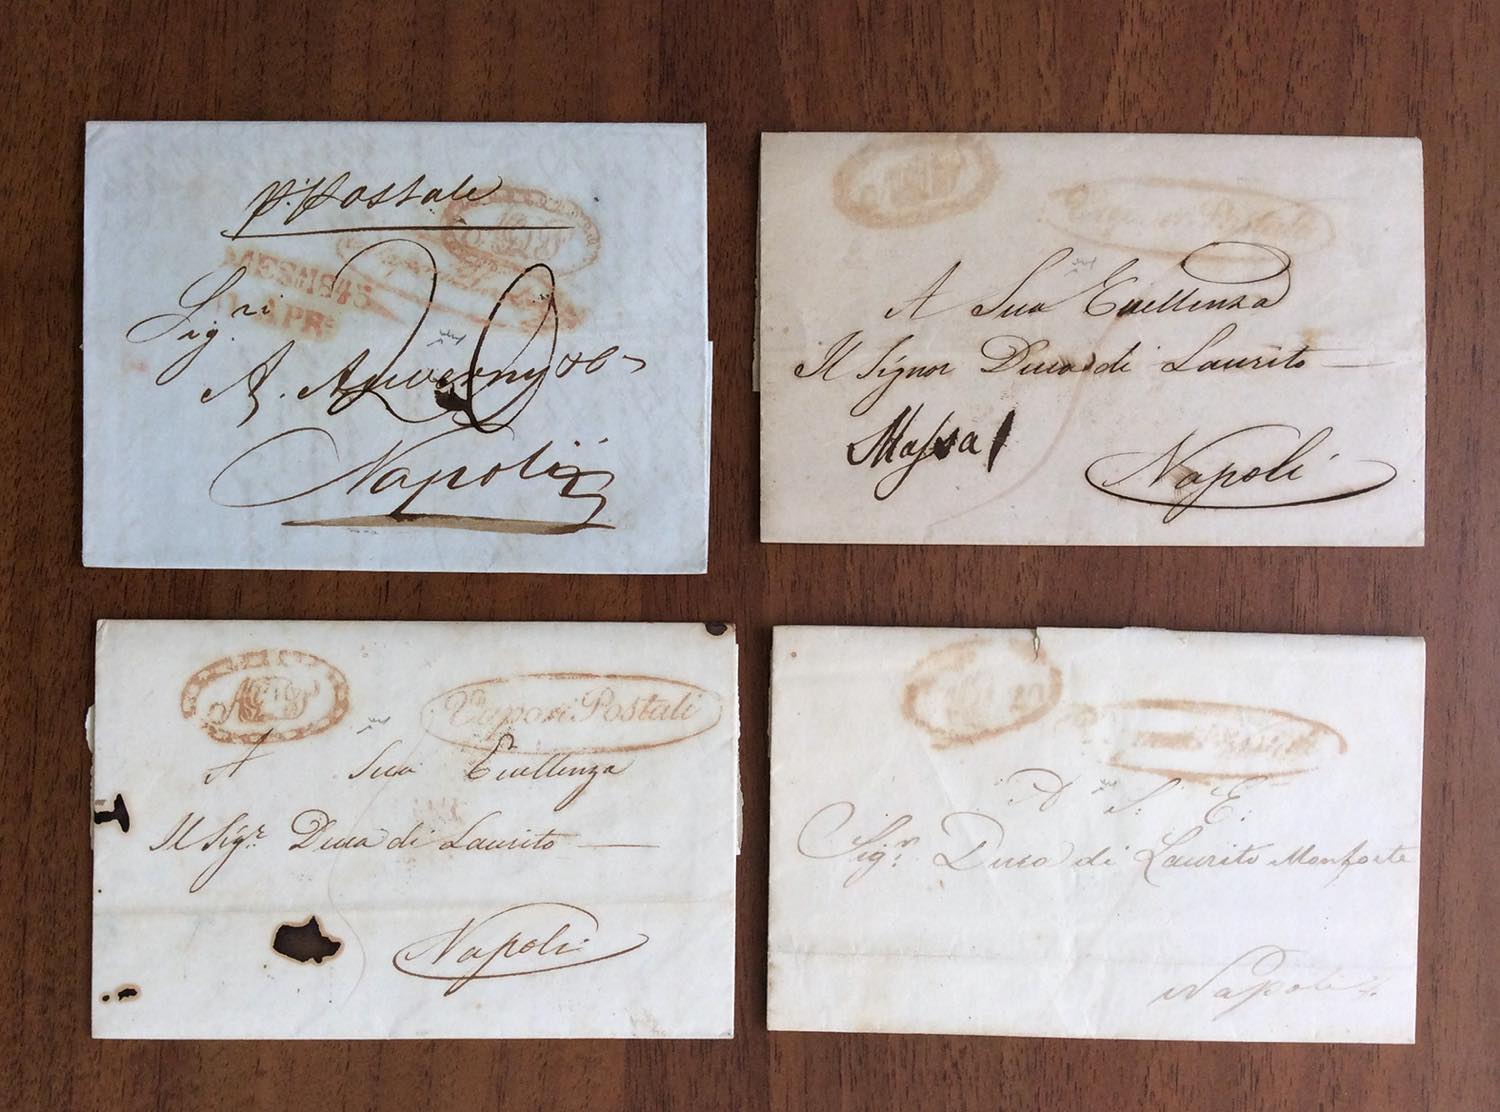 p. Postale
MESS. 1845
APR.
Sig.ri
A.
Napoli
Vapori Postali
A Sua Eccellenza
Il Signor Duca di Laurito
Massa
Napoli
Vapori Postali
A Sua Eccellenza
Il Sig.r Duca di Laurito
Napoli
A S. E.
Sig.r Duca di Laurito Monforte
Napoli